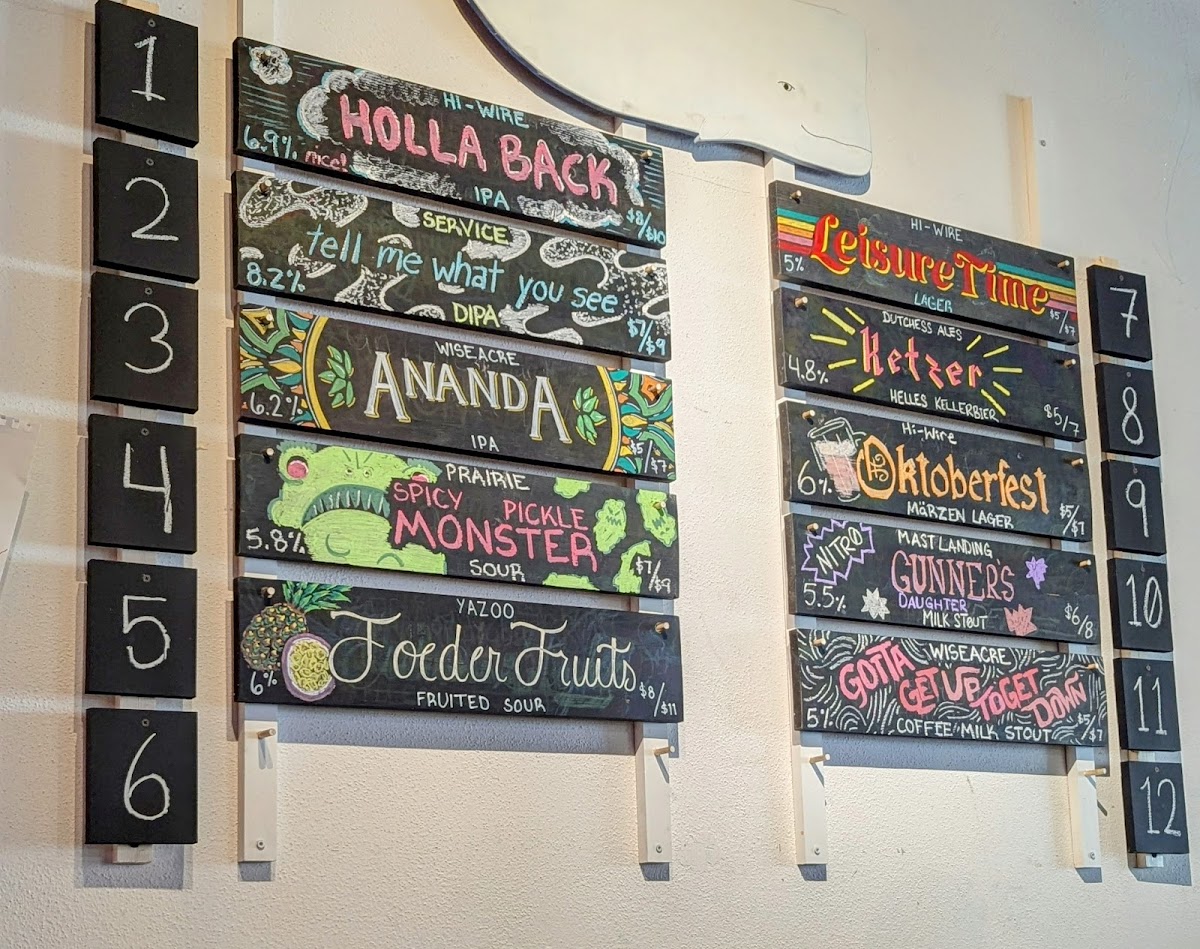 1
HI-WIRE
HOLLA BACK
6.9% nice!
IPA
$8/$10
2
SERVICE
tell me what you see
8.2%
DIPA
$7/$9
3
WISEACRE
ANANDA
6.2%
IPA
$5/$7
4
PRAIRIE
SPICY PICKLE
MONSTER
5.8%
SOUR
$7/$9
5
YAZOO
Foeder Fruits
6%
FRUITED SOUR
$8/$11
6
HI-WIRE
Leisure Time
5%
LAGER
$5/$7
7
DUTCHESS ALES
Ketzer
4.8%
HELLES KELLERBIER
$5/7
8
Hi-Wire
Oktoberfest
6%
MÄRZEN LAGER
$5/$7
9
NITRO
MAST LANDING
GUNNER'S
DAUGHTER
5.5%
MILK STOUT
$6/8
10
WISEACRE
GOTTA GET UP TO GET DOWN
5%
COFFEE MILK STOUT
$5/$7
11
12